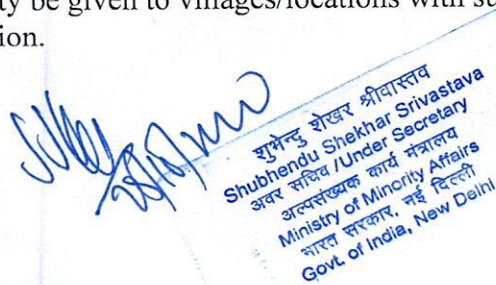 ty be given to villages/locations with su
ion.
शुभेन्दु शेखर श्रीवास्तव
Shubhendu Shekhar Srivastava
अवर सचिव /Under Secretary
अल्पसंख्यक कार्य मंत्रालय
Ministry of Minority Affairs
भारत सरकार, नई दिल्ली
Govt. of India, New Delhi